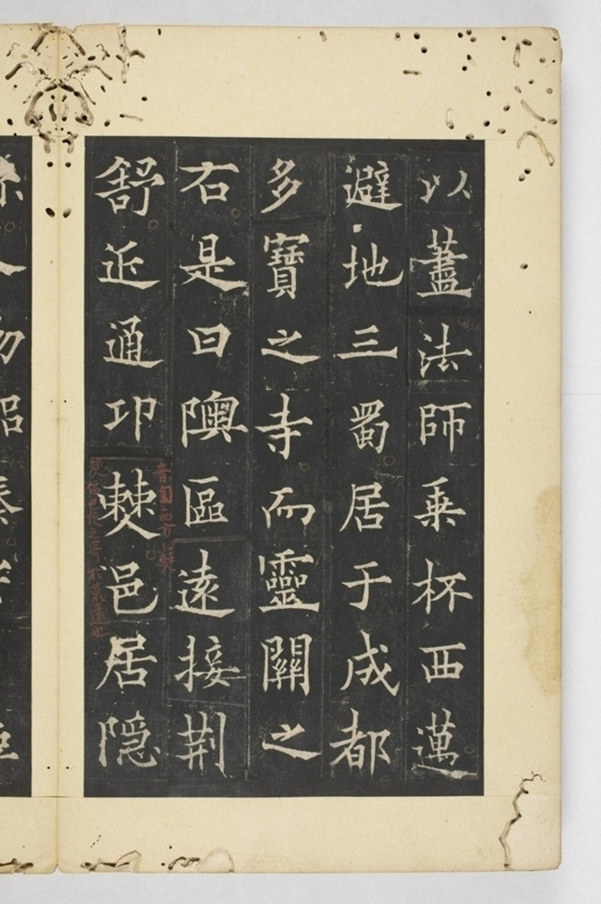 以藎法師乗杯西邁
避地三蜀居于成都
多寶之寺而靈關之
右是曰隩區遠接荆
舒近通邛僰邑居隠